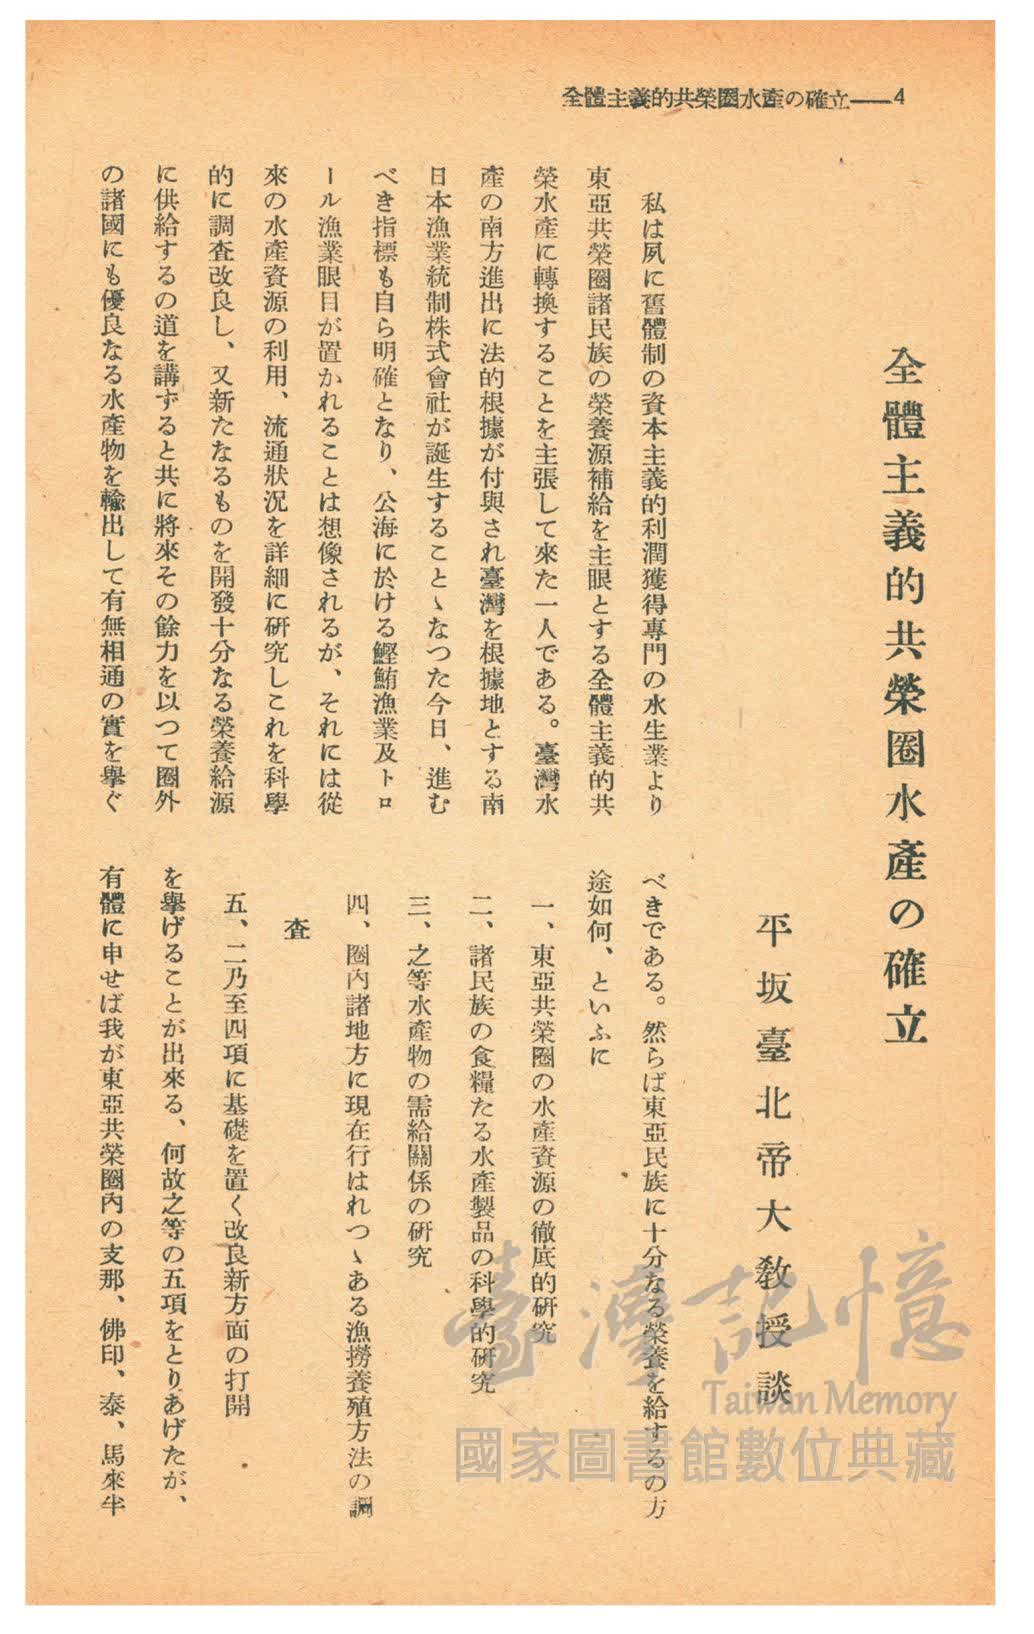 全體主義的共榮圈水產の確立――4
全體主義的共榮圈水產の確立
平坂臺北帝大敎授談
私は夙に舊體制の資本主義的利潤獲得專門の水生業より
東亞共榮圈諸民族の榮養源補給を主眼とする全體主義的共
榮水產に轉換することを主張して來た一人である。臺灣水
產の南方進出に法的根據が付與され臺灣を根據地とする南
日本漁業統制株式會社が誕生することゝなつた今日、進む
べき指標も自ら明確となり、公海に於ける鰹鮪漁業及トロ
ール漁業眼目が置かれることは想像されるが、それには從
來の水產資源の利用、流通狀況を詳細に硏究しこれを科學
的に調査改良し、又新たなるものを開發十分なる榮養給源
に供給するの道を講ずると共に將來その餘力を以つて圈外
の諸國にも優良なる水產物を輸出して有無相通の實を擧ぐ
べきである。然らば東亞民族に十分なる榮養を給するの方
途如何、といふに
一、東亞共榮圈の水產資源の徹底的硏究
二、諸民族の食糧たる水產製品の科學的硏究
三、之等水產物の需給關係の硏究
四、圈內諸地方に現在行はれつゝある漁撈養殖方法の調
査
五、二乃至四項に基礎を置く改良新方面の打開
を擧げることが出來る、何故之等の五項をとりあげたが、
有體に申せば我が東亞共榮圈內の支那、佛印、泰、馬來半
臺灣記憶
Taiwan Memory
國家圖書館數位典藏